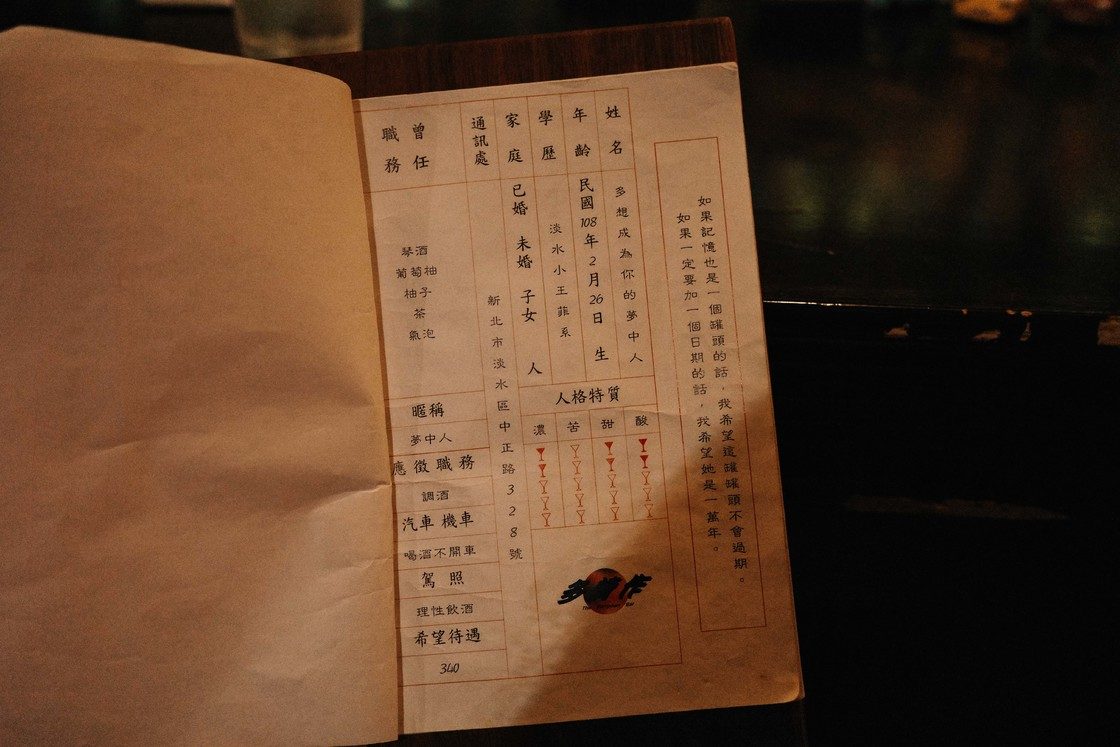 如果記憶也是一個罐頭的話，我希望這罐罐頭不會過期。
如果一定要加一個日期的話，我希望她是一萬年。
姓名
多想成為你的夢中人
年齡
民國108年2月26日 生
學歷
淡水小王菲系
家庭
已婚 未婚 子女 人
通訊處
新北市淡水區中正路328號
曾任職務
琴酒
葡萄柚
柚子
茶
氣泡
人格特質
酸
甜
苦
濃
暱稱
夢中人
應徵職務
調酒
汽車 機車
喝酒不開車
駕照
理性飲酒
希望待遇
340
多賀作